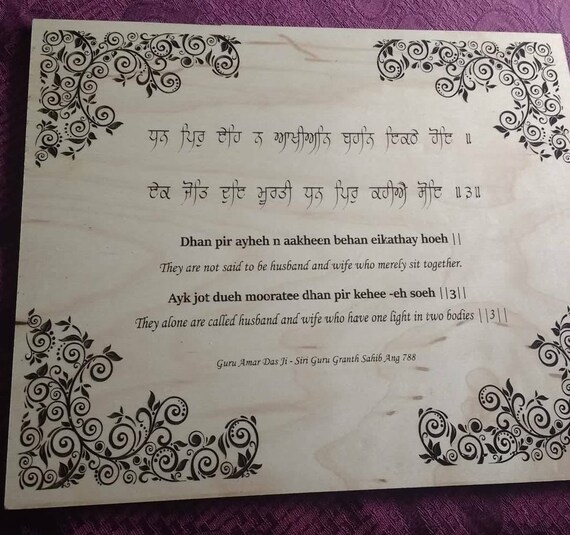 ਧਨ ਪਿਰੁ ਏਹਿ ਨ ਆਖੀਅਨਿ ਬਹਨਿ ਇਕਠੇ ਹੋਇ ॥
ਏਕ ਜੋਤਿ ਦੁਇ ਮੂਰਤੀ ਧਨ ਪਿਰੁ ਕਹੀਐ ਸੋਇ ॥੩॥
Dhan pir ayheh n aakheen behan eikathay hoeh ||
They are not said to be husband and wife who merely sit together.
Ayk jot dueh mooratee dhan pir kehee -eh soeh ||3||
They alone are called husband and wife who have one light in two bodies ||3||
Guru Amar Das Ji - Siri Guru Granth Sahib Ang 788